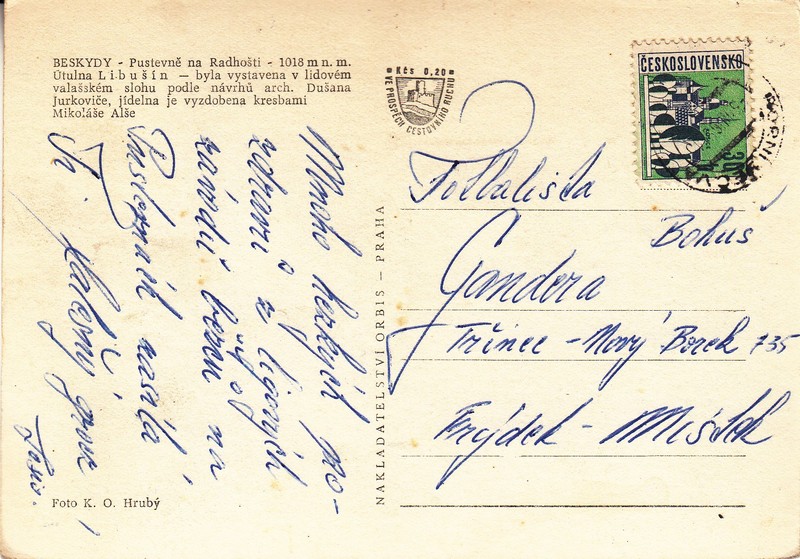 BESKYDY - Pustevně na Radhošti - 1018 m n. m.
Útulna Libušín — byla vystavena v lidovém
valašském slohu podle návrhů arch. Dušana
Jurkoviče, jídelna je vyzdobena kresbami
Mikoláše Alše
Kčs 0,20
VE PROSPĚCH CESTOVNÍHO RUCHU
ČESKOSLOVENSKO
30
Mnoho hezkých po-
zdravů z ligových
závodů žen na
Pustevnách zasílá
NAKLADATELSTVÍ ORBIS — PRAHA
Fotbalista
Bohuš
Gandera
Třinec - Nový Borek 735
Frýdek - Místek
Foto K. O. Hrubý